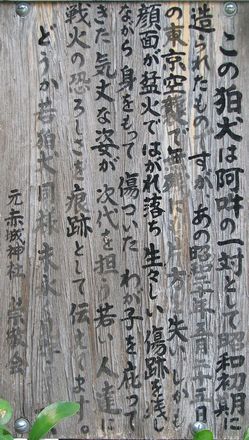 この狛犬は阿吽の一対として昭和初期に
造られたものですが あの昭和二十年五月二十五日
の東京空襲で無残にも片方を失い しかも
顔面が猛火ではがれ落ち 生々しい傷跡を残し
ながら 身をもって 傷ついた わが子を庇って
きた 気丈な姿が 次代を担う若い人達に
戦火の恐ろしさを 痕跡として伝えてます。
どうか 若狛犬同様 末永く
元赤城神社 崇敬会